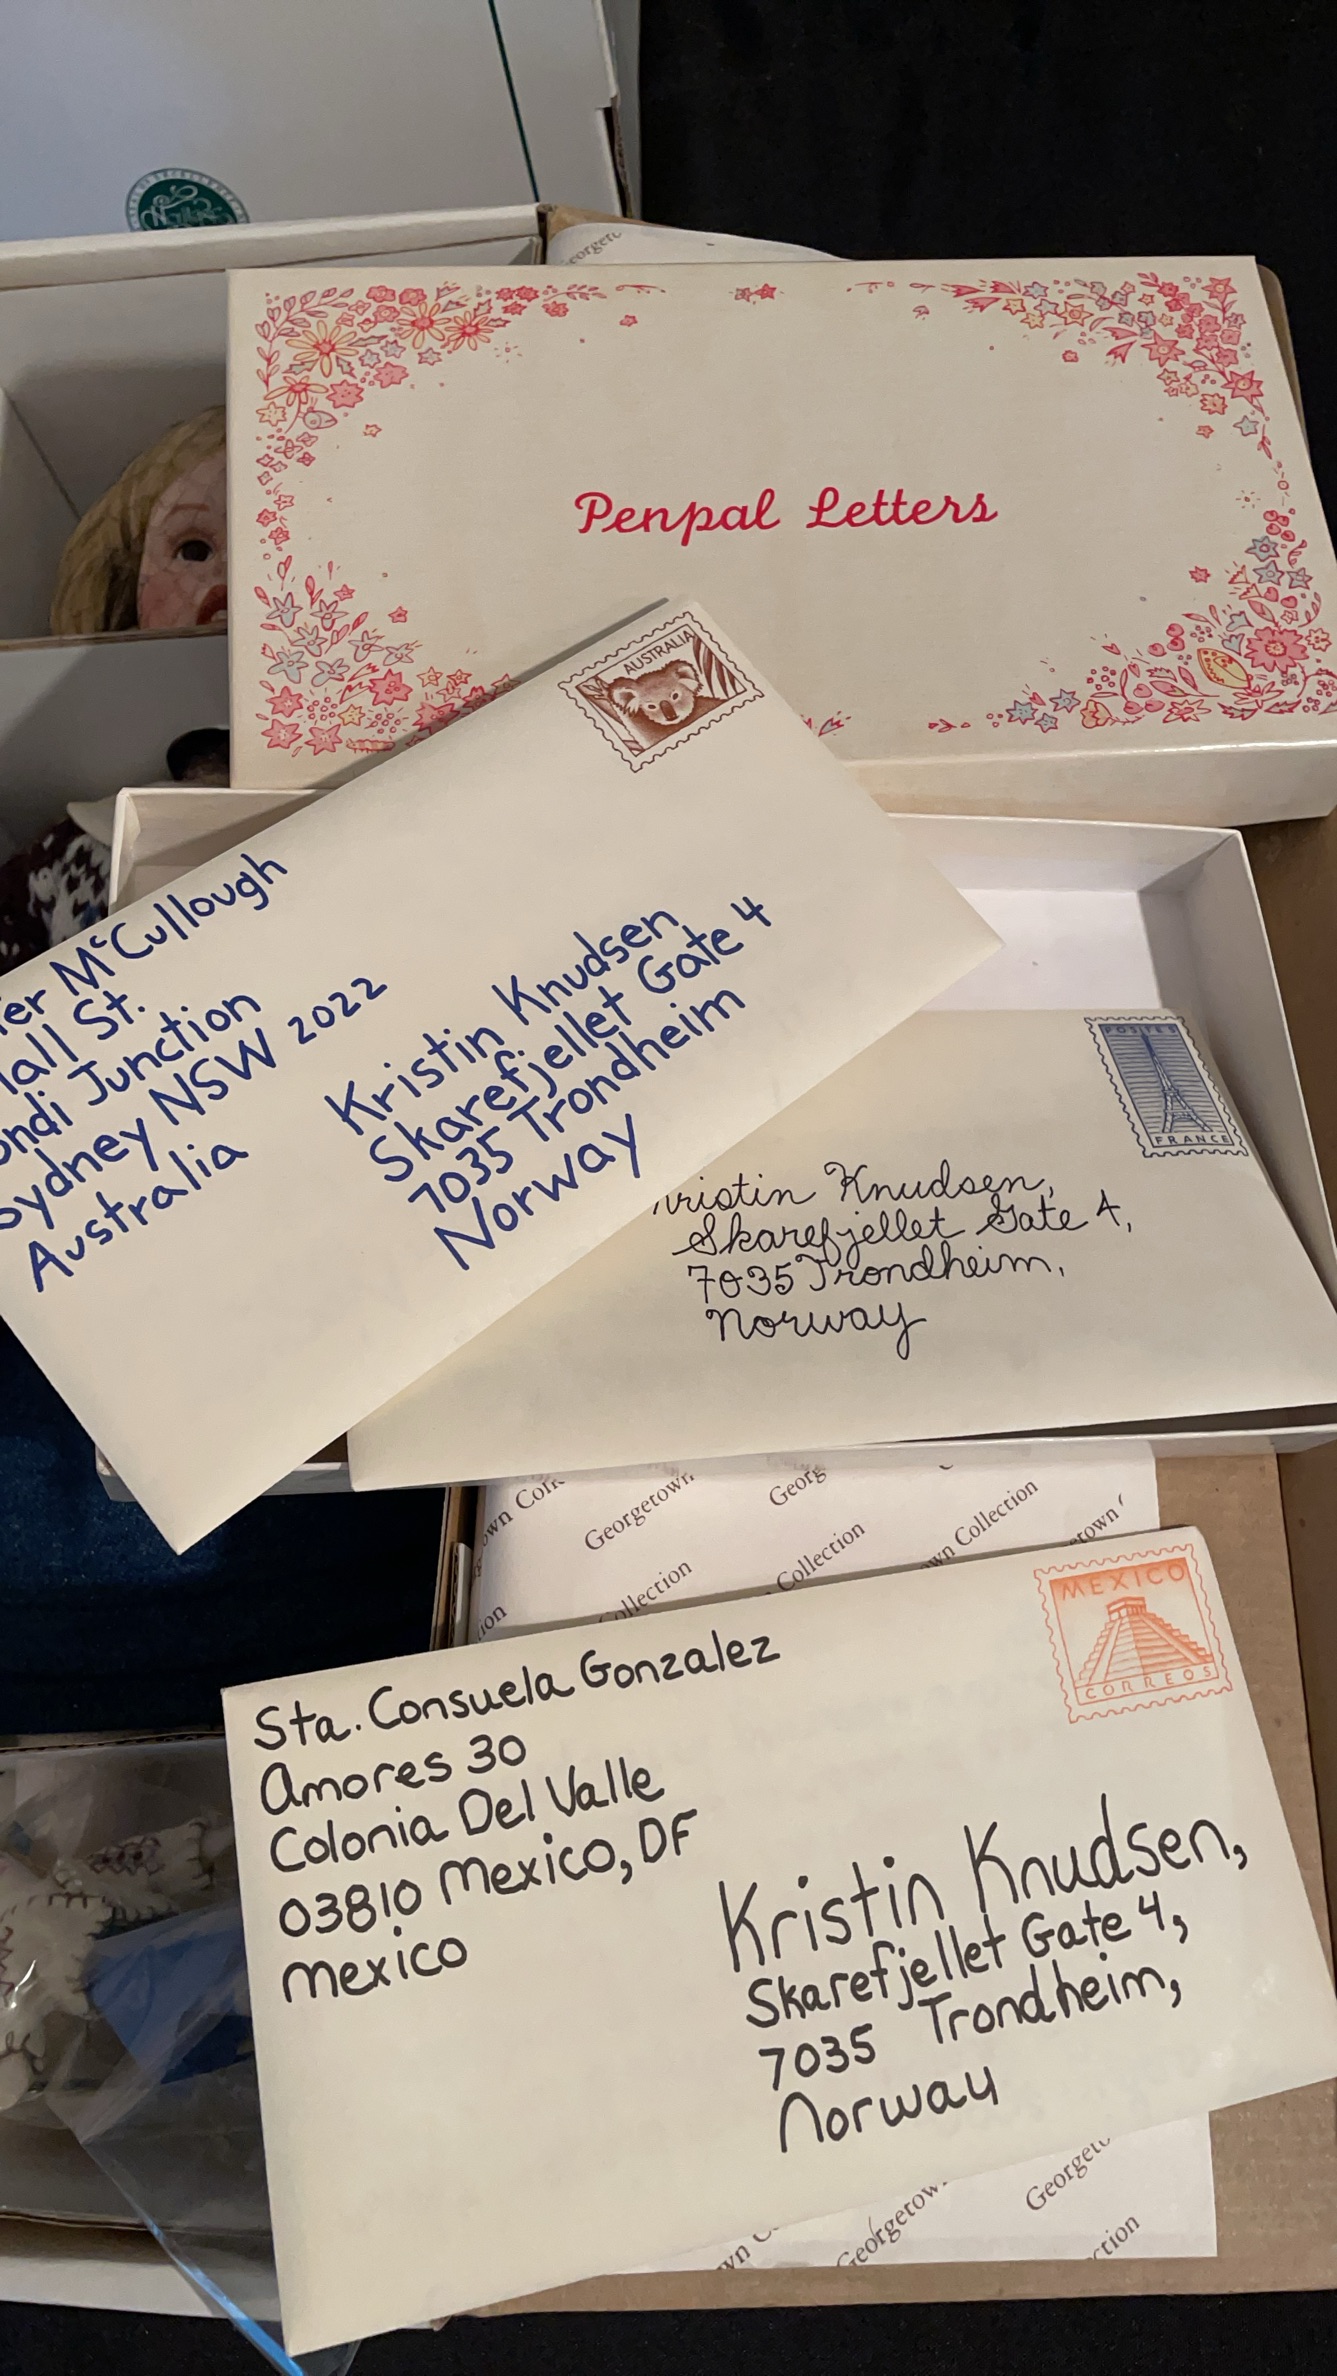 Penpal Letters
AUSTRALIA
McCullough
St.
Junction
Sydney NSW 2022
Australia
Kristin Knudsen
Skarefjellet Gate 4
7035 Trondheim
Norway
POSTES
FRANCE
Knudsen,
Skarefjellet Gate 4,
7035 Trondheim,
Norway
Georgetown
Collection
Collection
Collection
Collection
MEXICO
CORREOS
Sta. Consuela Gonzalez
Amores 30
Colonia Del Valle
03810 Mexico, DF
Mexico
Kristin Knudsen,
Skarefjellet Gate 4,
7035 Trondheim,
Norway